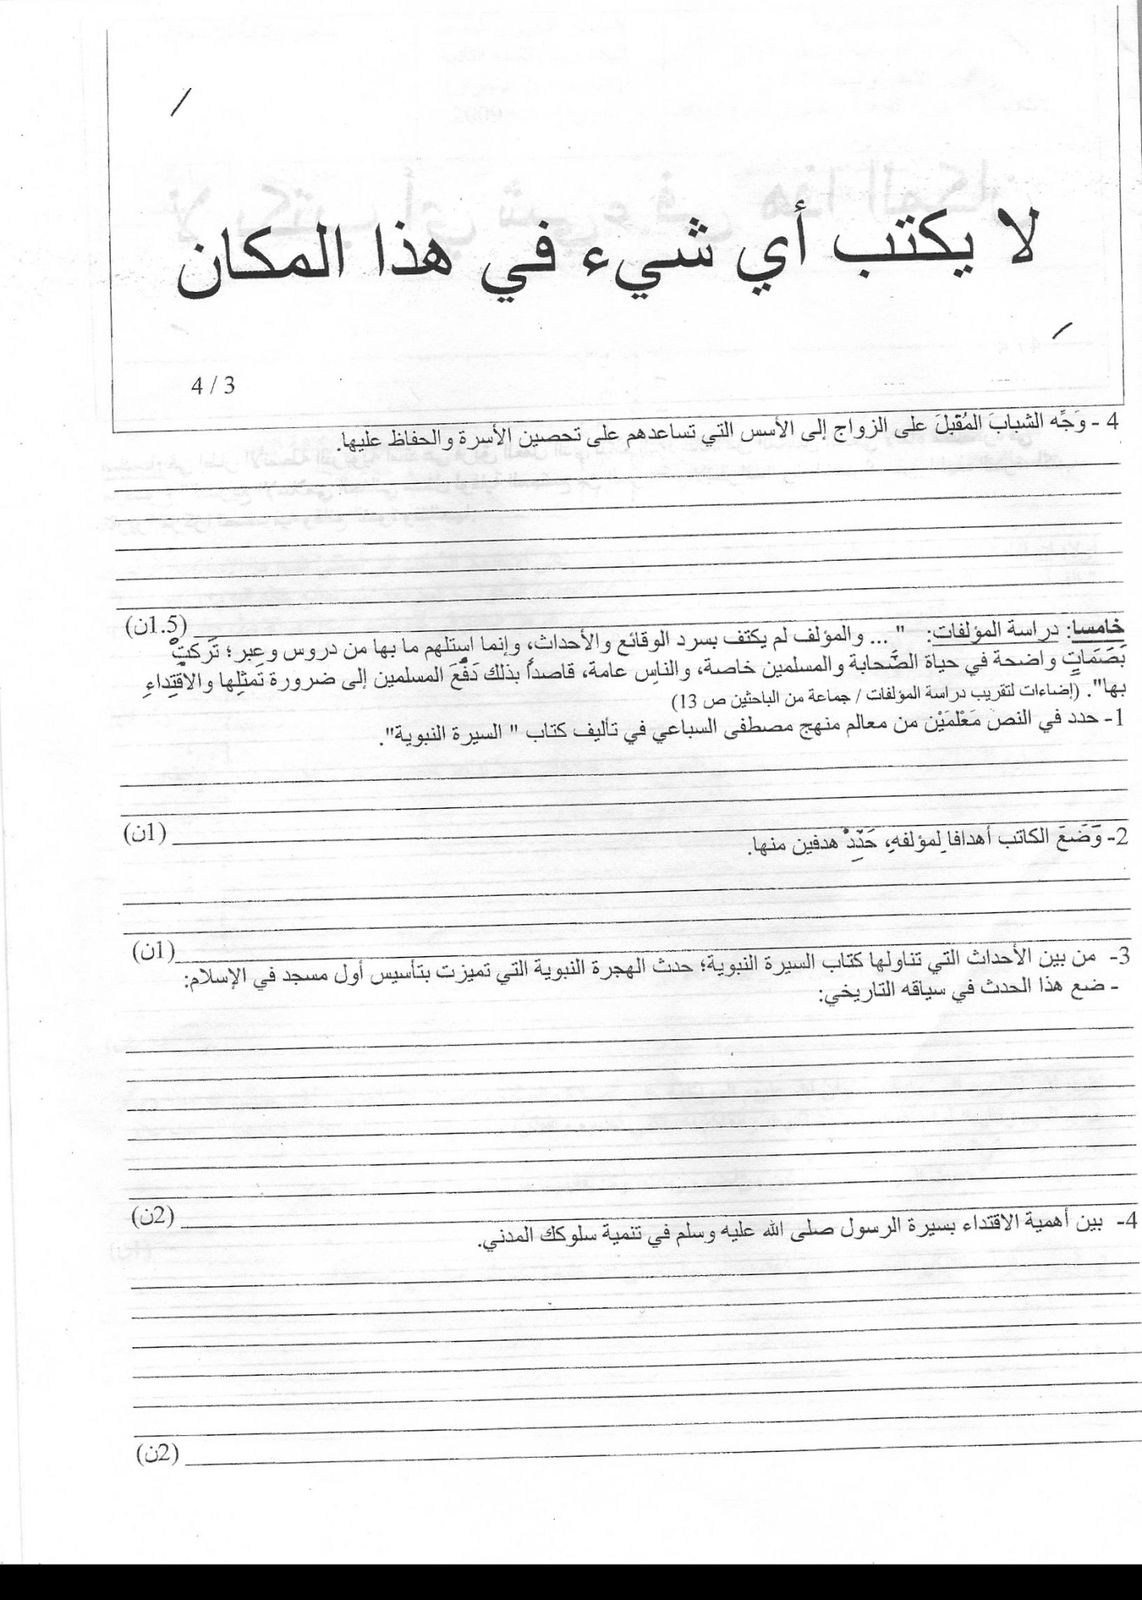 لا يكتب أي شيء في هذا المكان
4 / 3
4 - وَجِّه الشبابَ المُقبلَ على الزواج إلى الأسس التي تساعدهم على تحصين الأسرة والحفاظ عليها.
(1.5ن)
خامسا: دراسة المؤلفات: " ... والمؤلف لم يكتف بسرد الوقائع والأحداث، وإنما استلهم ما بها من دروس وعِبر؛ تَرَكَتْ
بَصَمَاتٍ واضحة في حياة الصَّحابة والمسلمين خاصة، والناس عامة، قاصداً بذلك دَفْعَ المسلمين إلى ضرورة تمثلِها والاقتِداءِ
بها". (إضاءات لتقريب دراسة المؤلفات / جماعة من الباحثين ص 13)
1- حدد في النص مَعْلَمَيْن من معالم منهج مصطفى السباعي في تأليف كتاب " السيرة النبوية".
(1ن)
2- وَّضَعَ الكاتب أهدافا لِمؤلفهِ، حَدِّدْ هدفين منها.
(1ن)
3- من بين الأحداث التي تناولها كتاب السيرة النبوية؛ حدث الهجرة النبوية التي تميزت بتأسيس أول مسجد في الإسلام:
- ضع هذا الحدث في سياقه التاريخي:
(2ن)
4- بين أهمية الاقتداء بسيرة الرسول صلى الله عليه وسلم في تنمية سلوكك المدني.
(2ن)